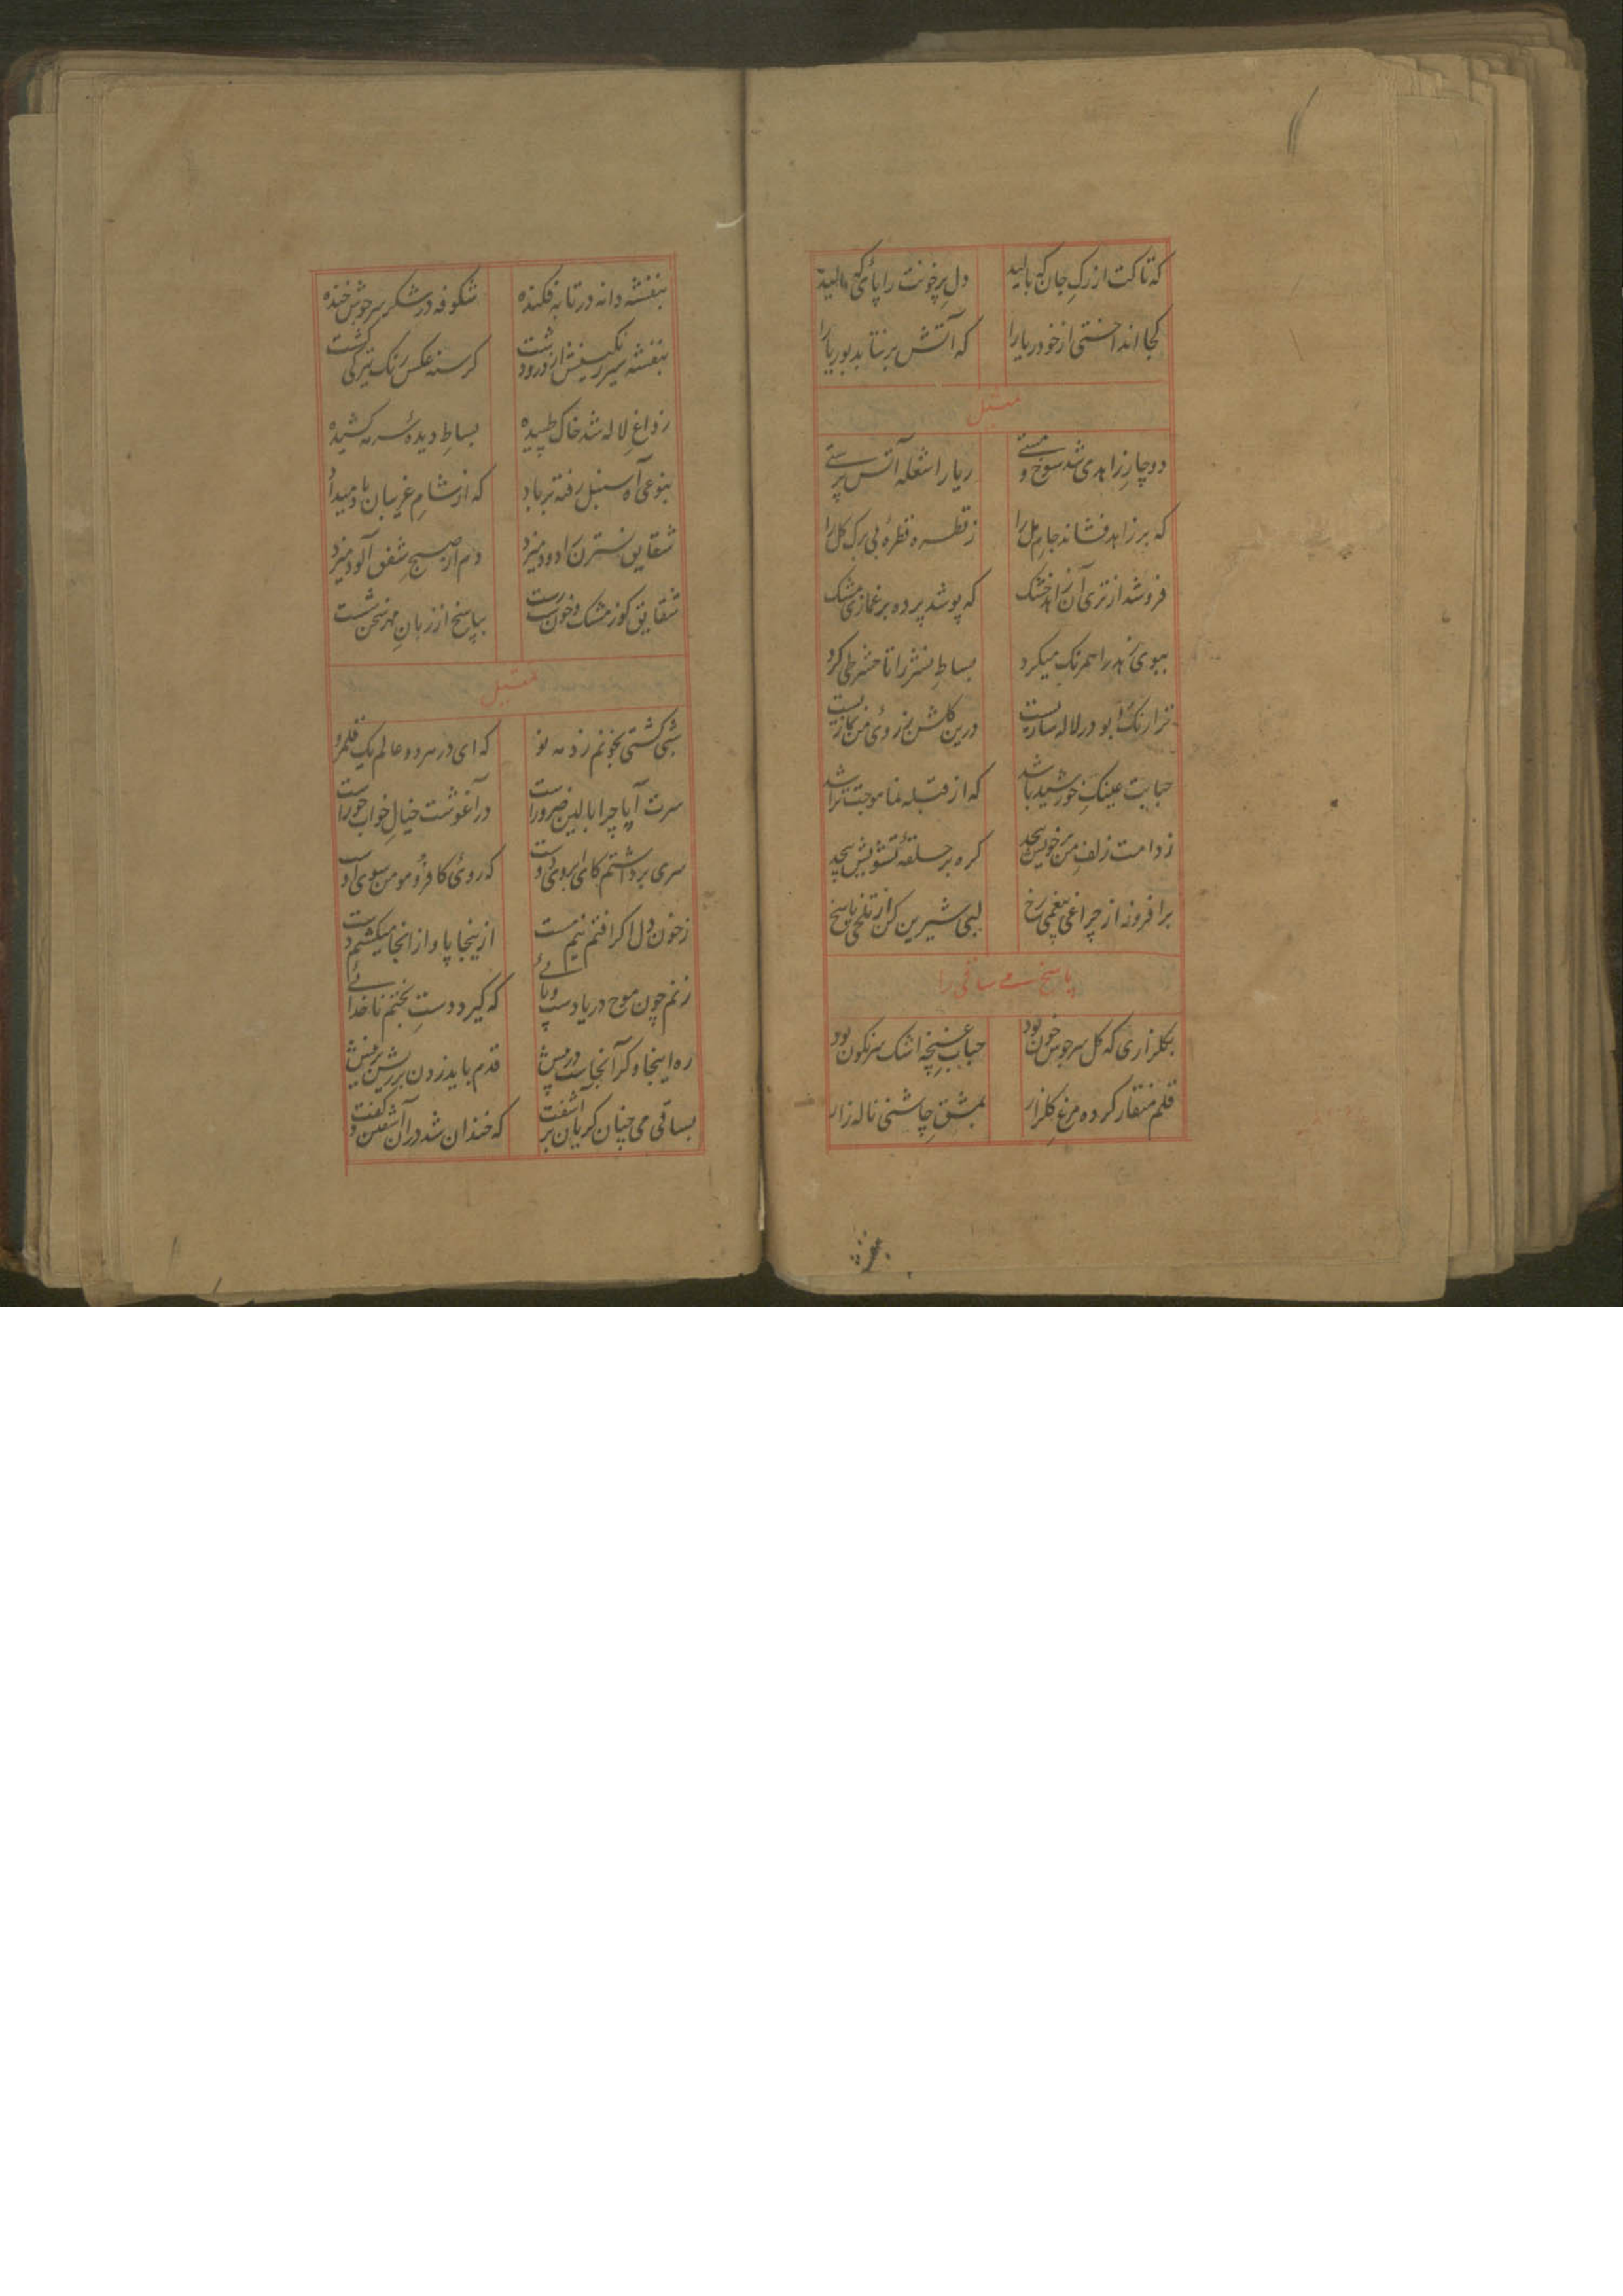 که تاکت از رگ جان که بالید دل پرخونت را پای که مالید
کجا انداختی از خود ریا را که آتش برنتابد بوریا را
تمثیل
دوچار زاهدی شد شوخ و مستی ریا را شعله آتش پرستی
که بر زاهد فشاند جام مل را ز قطره قطره بی برک کل را
فروشد از تری آن زاهد خشک که پوشد پرده بر غمازی مشک
ببوی زهد را همرنک میکرد بساط بستر را تا
ترا رنک و بو در لاله درین کلشن ز روی من
حبابت عینک خورشید باشد که از قبله نما موجت تراشد
ز دامت زلف من بر خویش پیچد کره بر حلقه تشویش پیچد
برافروز از چراغ بیغمی رخ لبی شیرین کن از تلخی پاسخ
پاسخ می ساقی را
بکلزاری که کل سرجوش خون بود حباب غنچه اشک سرنکون بود
قلم منقار کرده مرغ کلزار بمشق چاشنی ناله زار
بنفشه دانه در تابه فکنده شکوفه در شکر سرجوش خنده
بنفشه سیر کرسنه عکس رنک تیرکی کشت
ز داغ لاله شد خاک طپیده بساط دیده سرمه کشیده
بنوعی آه سنبل رفته بر باد که از شام غریبان یاد میداد
شقایق نسترن را دود میزد دم از صبح شفق آلود میزد
شقایق کوز مشک و خون بپاسخ از زبان
تمثیل
شبی کشتی بخونم زد مه نو که ای در هر دو عالم یک قلمرو
سرت آیا چرا بالین ضرور است در آغوشت خیال خواب حور است
سری برداشتم کای ابروی دوست که روی کافر و مومن سوی اوست
ز خون دل اکر افتم نیم مست از ینجا پا و از انجا میکشم دست
زنم چون موج دریا دست و پائی که کیرد دست بختم ناخدائی
ره اینجا و کر آنجاست در پیش قدم باید زدن بر ریش بر نیش
بساقی می چنان کریان بر آشفت که خندان شد در آن آشفتن و کفت